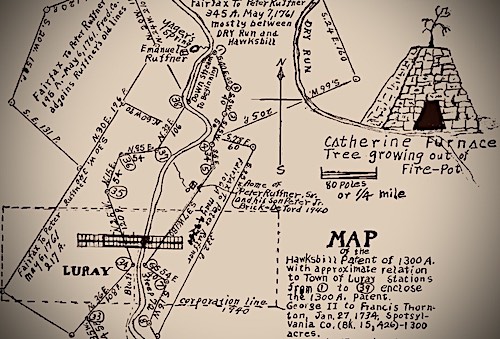 Fairfax To Peter Ruffner
345 A. May 7, 1761
mostly between
DRY Run and
Hawksbill
DRY RUN
S.24E.160
S.66W.
Yager's
Spring
Emanuel
Ruffner
Fairfax To Peter Ruffner
196 A. May 6, 1761. Fred Co.
adjoins Ruffner's old line.
S.E.131 P.
N.30E.
N60W
Downstream
to Beginning
205 N
N85E
54
S
Catherine Furnace
Tree growing out of
Fire-Pot
80 POLES
or 1/4 mile
Home of
Peter Ruffner, Sr.
and his son Peter Jr.
Brick-DeFord 1940
Fairfax To Peter Ruffner
May 6, 1761
217 A.
LURAY
corporation line
1940
MAP
of the
Hawksbill Patent of 1300 A.
with approximate relation
to Town of Luray Stations
from 1 to 39 enclose
the 1300 A. Patent.
George II to Francis Thorn-
ton, Jan. 27, 1734, Spotsyl-
vania Co, (Bk. 15, 426)-1300
acres.